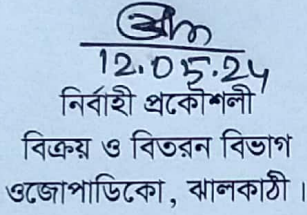 12.05.24
নির্বাহী প্রকৌশলী
বিক্রয় ও বিতরন বিভাগ
ওজোপাডিকো, ঝালকাঠী।